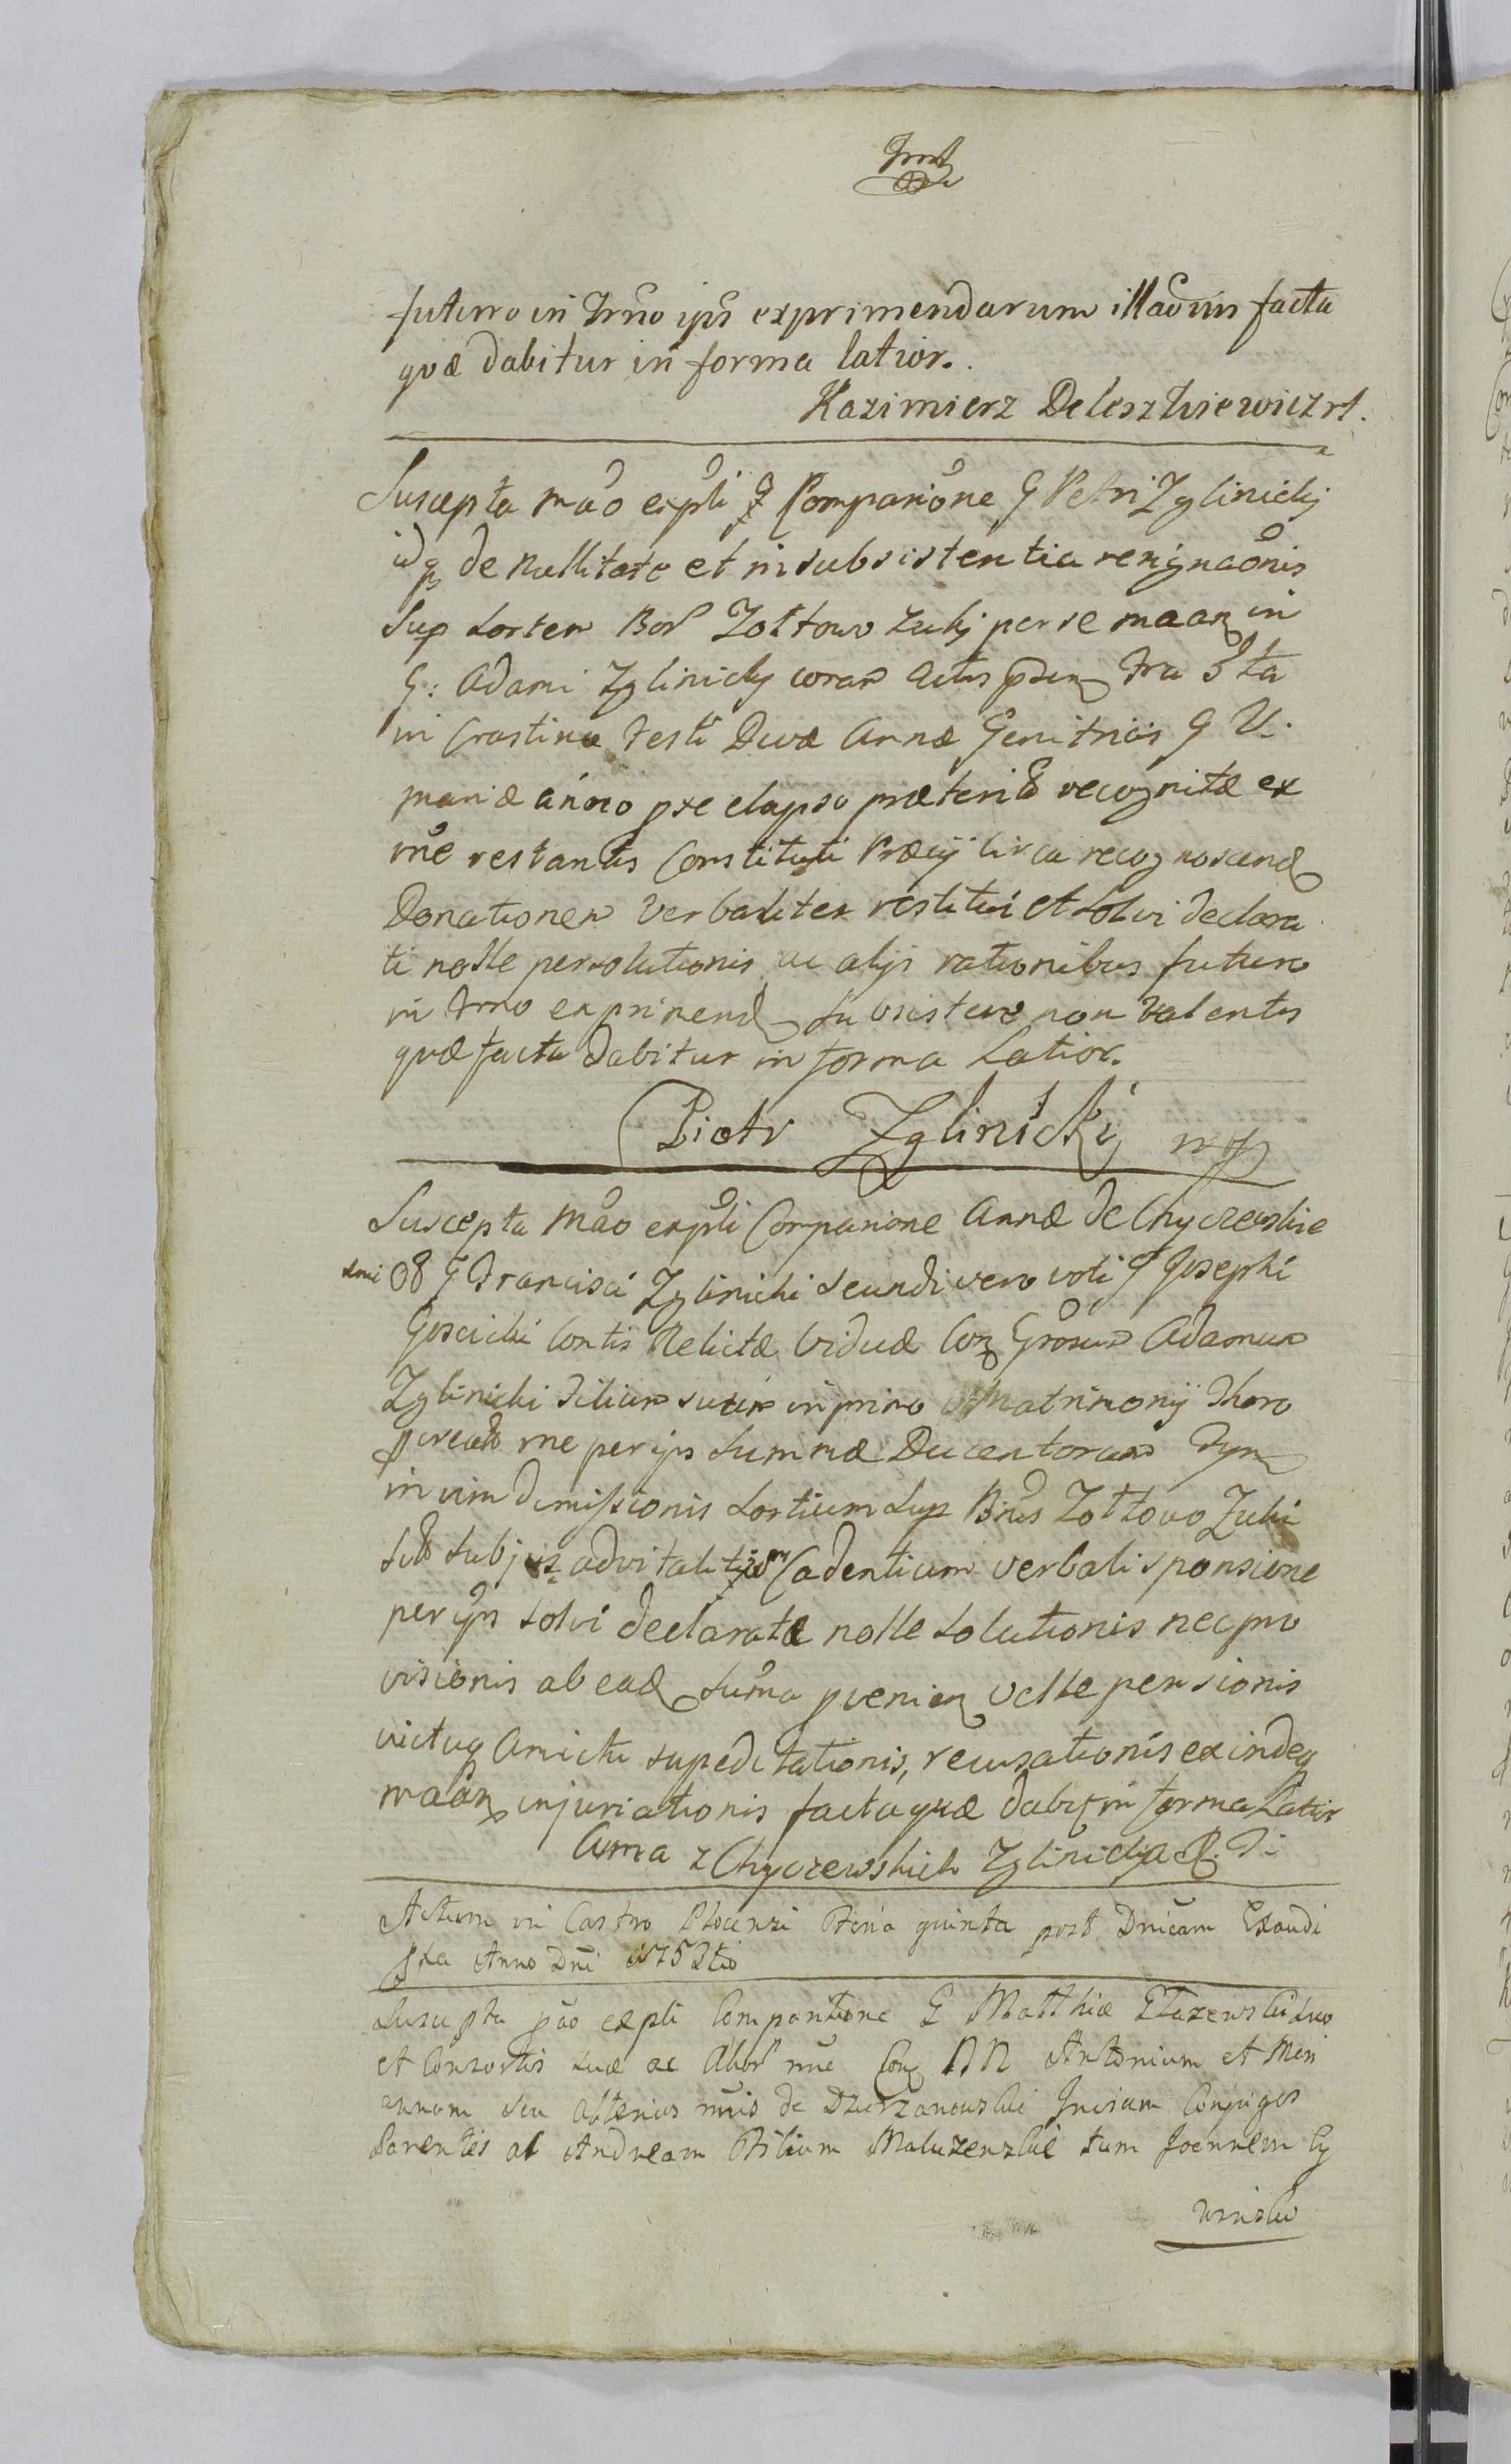 futuro in Trno ips exprimendarum illarum facta
quæ dabitur in forma latior.
Kazimierz Deleszkiewicz
Suscepta mão expli Comparione G Petri Zglinickj
idq de Nullitate et insubsistentia resignaõnis
Sup sortem Bor Zołtowo Zukj per se in
G: Adami Zglinickj coram Actis Fra 3 ta
in Crastino Festi Divæ Annæ Genitricis G V.
Mariæ anno pxe elapso præterito recognitæ ex
restantis Constituti circa recognoscend
Donationem verbaliter restitui et solvi declara
ti nolle persolutionis ac alijs rationibus futuro
in Trno exprimend subsistere non valentis
quæ facta dabitur in forma Latior.
Piotr Zglinicki mp
Suscepta Mão expli Comparione Annæ de Chyczewskie
G Francisci Zglinicki secundi vero voti G Josephi
Goscicki Contis Relictæ Viduæ Con Grosum Adamum
Zglinicki Filium suum in primo Matrimonij Thoro
pcreatõ per ips summæ Ducentorum Tyn
in vim dimissionis sortium sup Bnis Zołtowo Zuki
sub jus advitalitium Cadentium verbali sponsione
per ips solvi declaratæ nolle solutionis nec pro
visionis ab ead suma pvenien velle pensionis
victuq amictu supeditationis, recusationis exindeq
injuriationis facta quæ dabit in forma Latior
Anna z Chyczewskich Zglinicka
Actum in Castro Plocensi Feria quinta post Dnicam Exaudi
Anno Dni 1752do
Suscepta expli Comparitione G Matthiæ suo
et Consortis suæ ac Con NN Antonium et Mari
annam seu alterius nuis de Dzierzanowskie Conjuges
Parentes ac Andream Filium tum Joannem Cy
winski